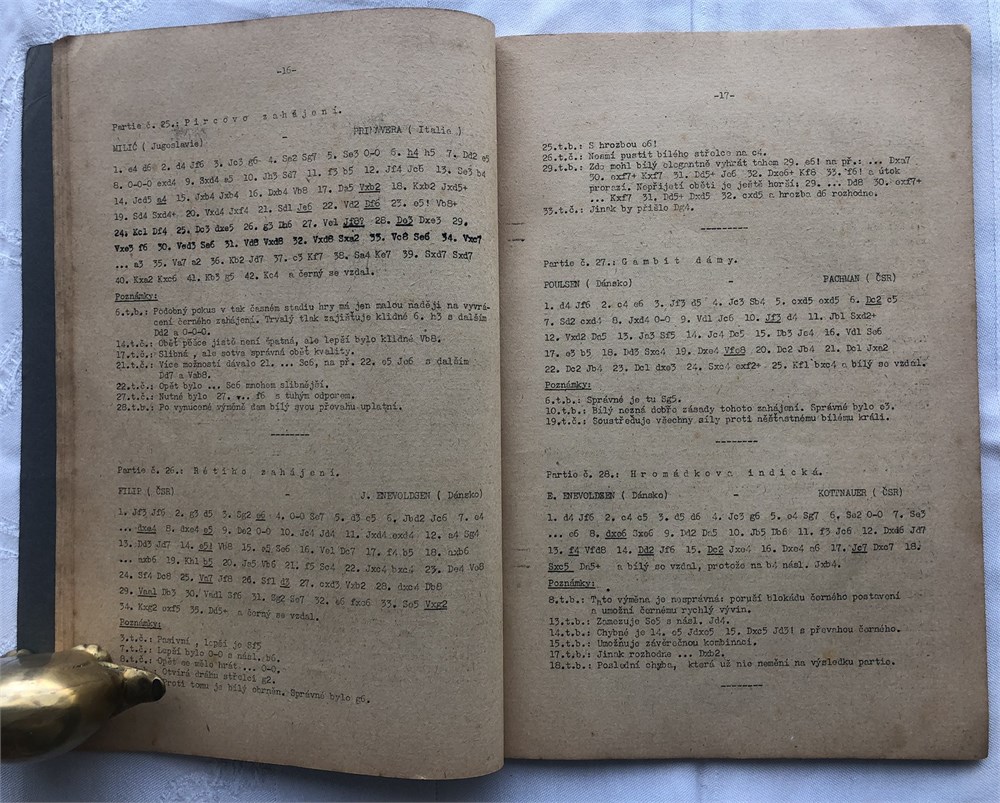 -16-
Partie č. 25.: Pircovo zahájení.
MILIĆ ( Jugoslavie) - PRIMAVERA ( Italie )
1. e4 d6 2. d4 Jf6 3. Jc3 g6 4. Se2 Sg7 5. Se3 0-0 6. h4 h5 7. Dd2 e5
8. 0-0-0 exd4 9. Sxd4 e5 10. Jh3 Sd7 11. f3 b5 12. Jf4 Jc6 13. Se3 b4
14. Jcd5 a4 15. Jxb4 Jxb4 16. Dxb4 Vb8 17. Da5 Vxb2 18. Kxb2 Jxd5+
19. Sd4 Sxd4+ 20. Vxd4 Jxf4 21. Sd1 Je6 22. Vd2 Df6 23. e5! Vb8+
24. Kc1 Df4 25. Dc3 dxe5 26. g3 Dh6 27. Ve1 Jf8? 28. De3 Dxe3 29.
Vxe3 f6 30. Ved3 Se6 31. Vd8 Vxd8 32. Vxd8 Sxa2 33. Vc8 Se6 34. Vxc7
... a3 35. Va7 a2 36. Kb2 Jd7 37. c3 Kf7 38. Sa4 Ke7 39. Sxd7 Sxd7
40. Kxa2 Kxc6 41. Kb3 g5 42. Kc4 a černý se vzdal.
Poznámky:
6.t.b.: Podobný pokus v tak časném stadiu hry má jen malou naději na vyvrá-
cení černého zahájení. Trvalý tlak zajišťuje klidné 6. h3 s dalším
Dd2 a 0-0-0.
14.t.č.: Oběť pěšce jistě není špatná, ale lepší bylo klidné Vb8.
17.t.č.: Slibná, ale sotva správná oběť kvality.
21.t.č.: Více možností dávalo 21. ... Sc6, na př. 22. e5 Je6 s dalším
Dd7 a Vab8.
22.t.č.: Opět bylo ... Sc6 mnohem slibnější.
27.t.č.: Nutné bylo 27. ... f6 s tuhým odporem.
28.t.b.: Po vynucené výměně dam bílý svou převahu uplatní.
--------
Partie č. 26.: Rétiho zahájení.
FILIP ( ČSR) - J. ENEVOLDSEN ( Dánsko)
1. Jf3 Jf6 2. g3 d5 3. Sg2 e6 4. 0-0 Se7 5. d3 c5 6. Jbd2 Jc6 7. e4
... dxe4 8. dxe4 e5 9. De2 0-0 10. Jc4 Jd4 11. Jxd4 exd4 12. a4 Sg4
13. Dd3 Jd7 14. e5! Vb8 15. a5 Se6 16. Ve1 Dc7 17. f4 b5 18. axb6
... axb6 19. Kh1 b5 20. Ja5 Vb6 21. f5 Sc4 22. Jxc4 bxc4 23. De4 Vc8
24. Sf4 Dc8 25. Va7 Jf8 26. Sf1 d3 27. cxd3 Vxb2 28. dxc4 Db8
29. Vaa1 Db3 30. Vad1 Sf6 31. Sg2 Se7 32. e6 fxe6 33. Se5 Vxg2
34. Kxg2 exf5 35. Dd5+ a černý se vzdal.
Poznámky:
3.t.č.: Pasivní, lepší je Sf5
7.t.č.: Lepší bylo 0-0 s násl. b6.
8.t.č.: Opět se mělo hrát ... 0-0.
Otvírá dráhu střelci g2.
Proti tomu je bílý obrněn. Správné bylo g6.
-17-
25.t.b.: S hrozbou e6!
26.t.č.: Nesmí pustit bílého střelce na c4.
29.t.b.: Zde mohl bílý elegantně vyhrát tahem 29. e6! na př.: ... Dxa7
30. exf7+ Kxf7 31. Dd5+ Je6 32. Dxe6+ Kf8 33. f6! a útok
prorazí. Nepřijetí oběti je ještě horší: 29. ... Dd8 30. exf7+
... Kxf7 31. Dd5+ Dxd5 32. cxd5 a hrozba d6 rozhodne.
33.t.č.: Jinak by přišlo Dg4.
---------
Partie č. 27.: Gambit dámy.
POULSEN ( Dánsko) - PACHMAN ( ČSR)
1. d4 Jf6 2. c4 e6 3. Jf3 d5 4. Jc3 Sb4 5. cxd5 exd5 6. Dc2 c5
7. Sd2 cxd4 8. Jxd4 0-0 9. Vd1 Jc6 10. Jf3 d4 11. Jb1 Sxd2+
12. Vxd2 Da5 13. Ja3 Sf5 14. Jc4 Dc5 15. Db3 Jc4 16. Vd1 Se6
17. e3 b5 18. Dd3 Sxc4 19. Dxe4 Vfc8 20. Dc2 Jb4 21. Dc1 Jxa2
22. Dc2 Jb4 23. Dc1 dxe3 24. Sxc4 exf2+ 25. Kf1 bxc4 a bílý se vzdal.
Poznámky:
6.t.b.: Správné je tu Sg5.
10.t.b.: Bílý nezná dobře zásady tohoto zahájení. Správné bylo e3.
19.t.č.: Soustřeďuje všechny síly proti nešťastnému bílému králi.
--------
Partie č. 28.: Hromádkova indická.
E. ENEVOLDSEN ( Dánsko) - KOTTNAUER ( ČSR)
1. d4 Jf6 2. c4 c5 3. d5 d6 4. Jc3 g6 5. e4 Sg7 6. Se2 0-0 7. Se3
... e6 8. dxe6 Sxe6 9. Dd2 Da5 10. Jb5 Db6 11. f3 Jc6 12. Dxd6 Jd7
13. f4 Vfd8 14. Dd2 Jf6 15. Dc2 Jxe4 16. Dxe4 a6 17. Jc7 Dxc7 18.
Sxc5 Da5+ a bílý se vzdal, protože na b4 násl. Jxb4.
Poznámky:
8.t.b.: Tato výměna je nesprávná: poruší blokádu černého postavení
a umožní černému rychlý vývin.
13.t.b.: Zamezuje Se5 s násl. Jd4.
14.t.b.: Chybné je 14. e5 Jdxe5 15. Dxc5 Jd3! s převahou černého.
15.t.b.: Umožňuje závěrečnou kombinaci.
17.t.b.: Jinak rozhodne ... Dxb2.
18.t.b.: Poslední chyba, která už nic nemění na výsledku partie.
--------